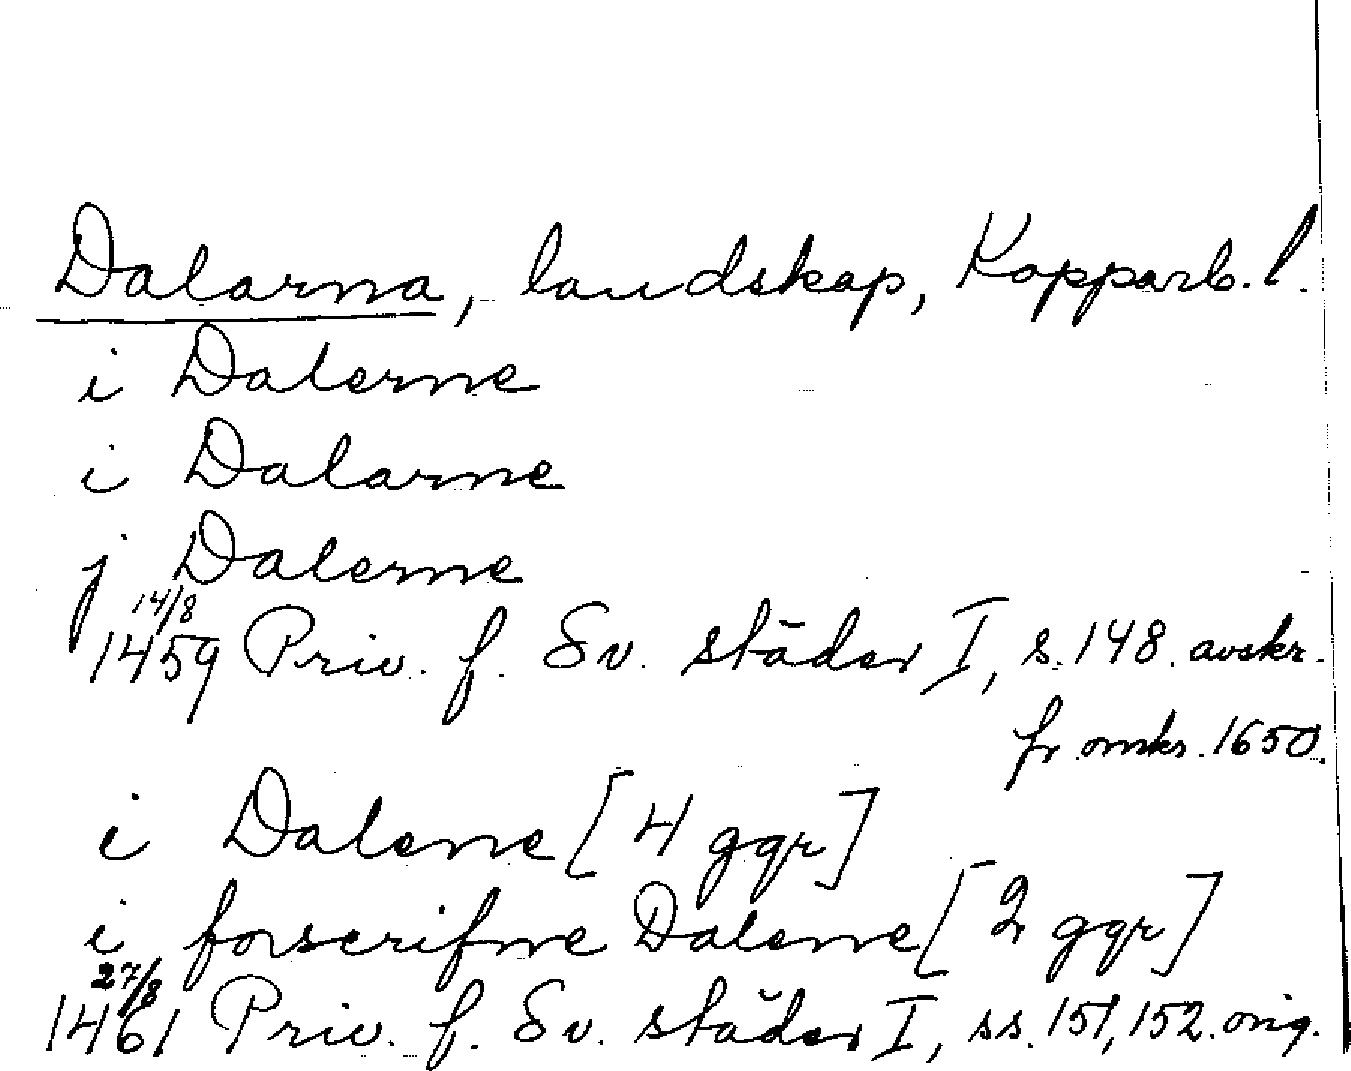 Dalarna, landskap, Kopparb. l.
i Dalerne
i Dalarne
j Dalerne
14/8
1459 Priv. f. Sv. städer I, s. 148. avskr.
fr. omkr. 1650.
i Dalerne [4 ggr]
i forscrifne Dalerne [2 ggr]
27/8
1461 Priv. f. Sv. städer I, ss. 151, 152. orig.